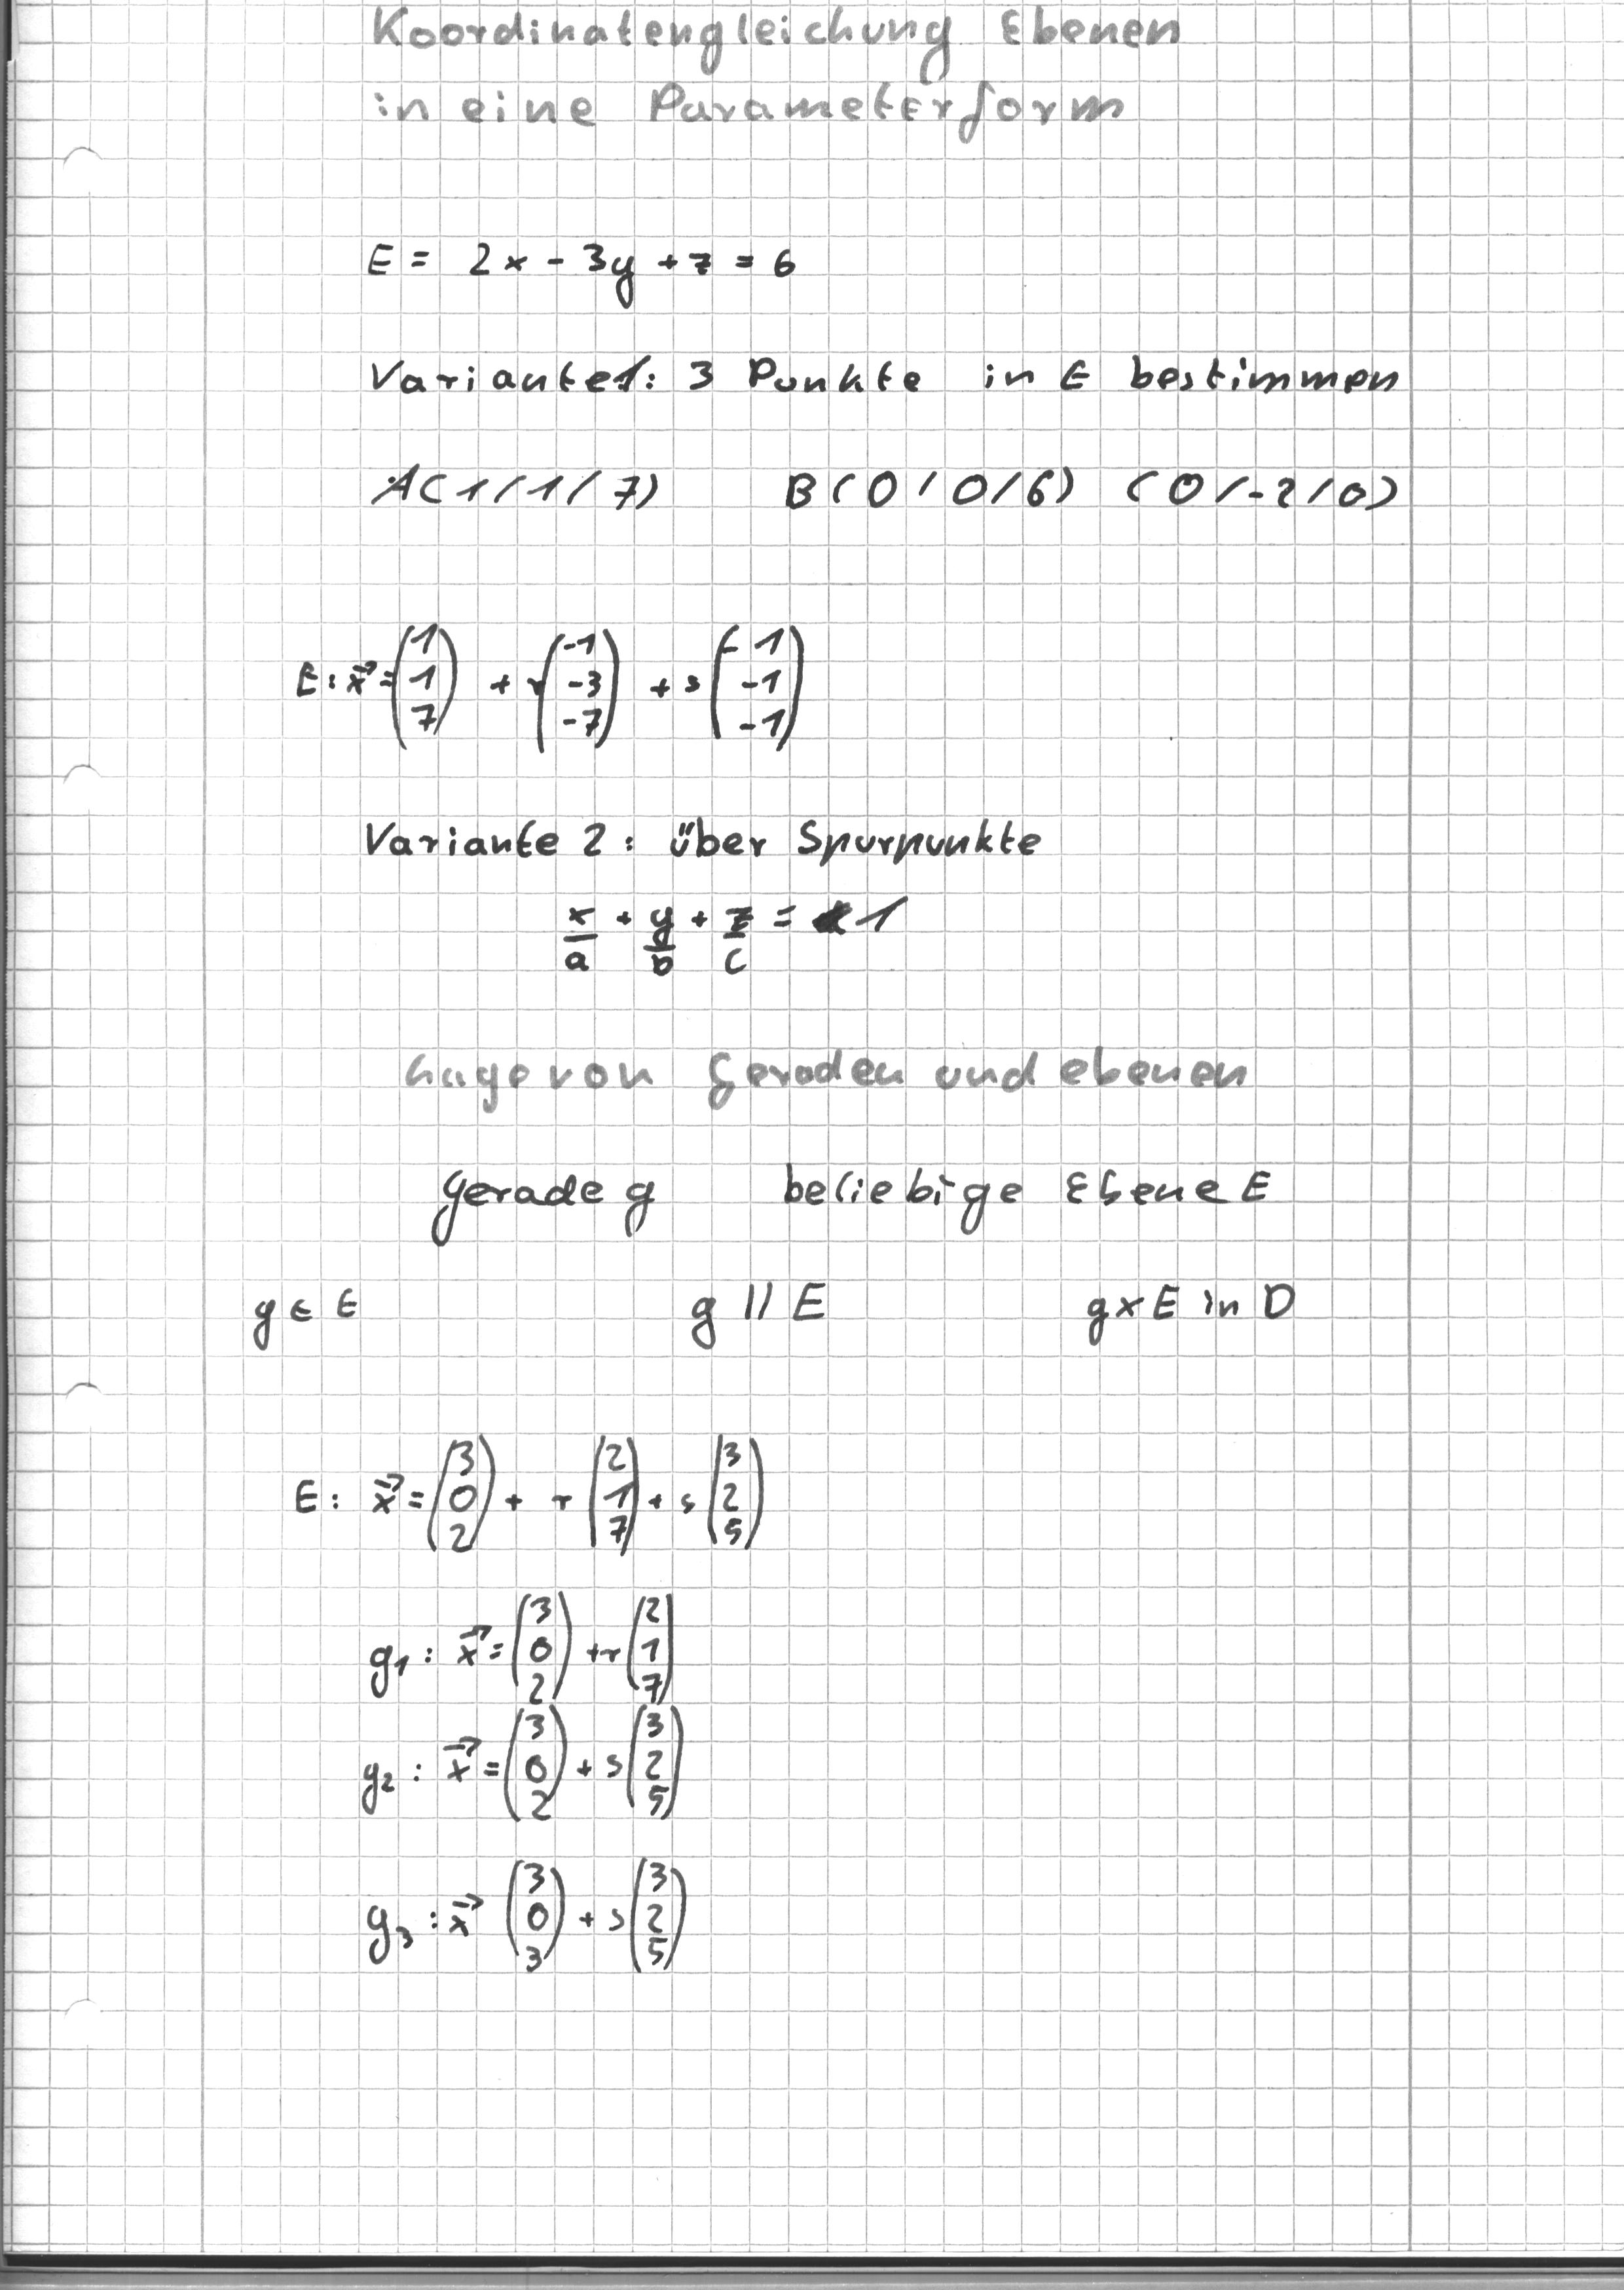 Koordinatengleichung Ebenen
in eine Parameterform
E = 2x - 3y + z = 6
Variante 1: 3 Punkte in E bestimmen
A(1/1/7) B(0/0/6) (0/-2/0)
E: x⃗ = (1 1 7) + r (-1 -3 -7) + s (-1 -1 -1)
Variante 2: über Spurpunkte
x/a + y/b + z/c = 1
Lage von Geraden und ebenen
Gerade g beliebige Ebene E
g ∈ E g || E g x E in D
E: x⃗ = (3 0 2) + r (2 1 7) + s (3 2 5)
g1: x⃗ = (3 0 2) + r (2 1 7)
g2: x⃗ = (3 0 2) + s (3 2 5)
g3: x⃗ (3 0 3) + s (3 2 5)